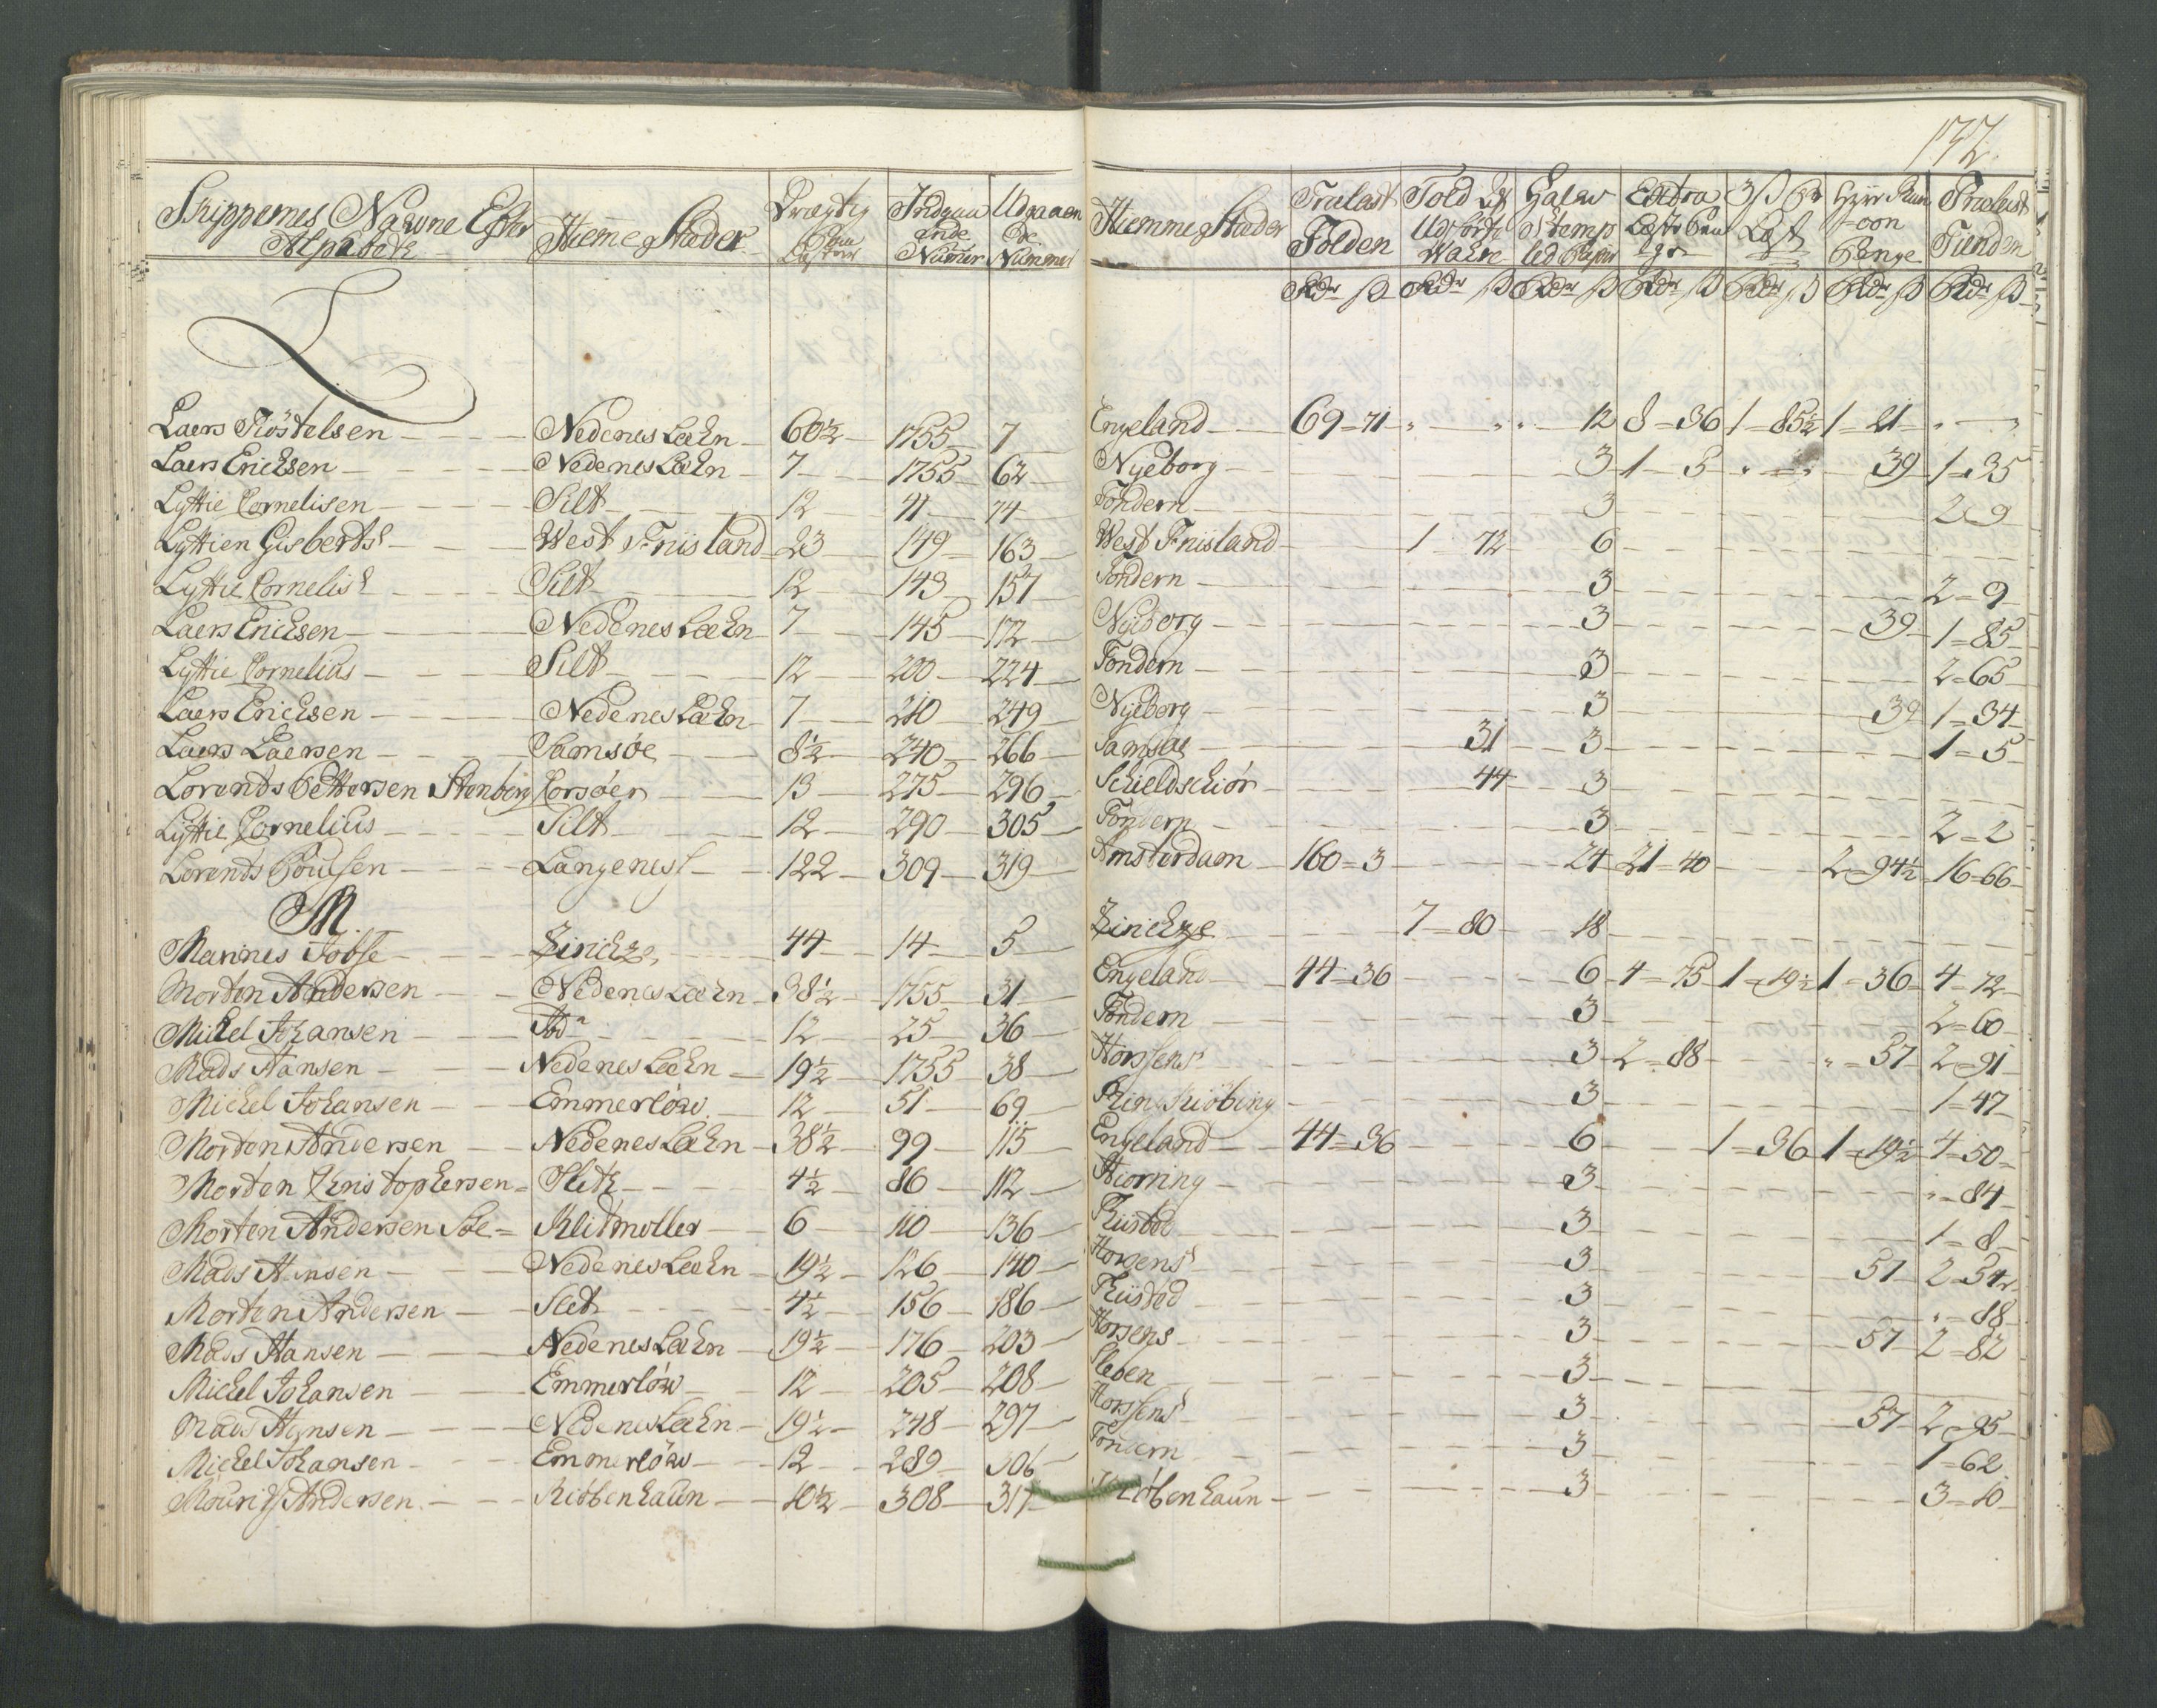 172.
Skippernes Nahvne Efter Alphabete Hiemmestæder Drægtig Paa Læster Indgaaende Numer Udgaaende Nummer Hiemmestæder Trælast Tolden Told af Udførte Wahre Halv Stempled Papiir Extra Læste Penge 3 ß Pr Læst Fyir Penge Trælast Tienden
Rdr ß Rdr ß Rdr ß Rdr ß Rdr ß Rdr ß Rdr ß
L
Laers Tiöstelsen Nedenes Læhn 60½ 1755 7 Engeland 69=71 12 8=36 1=85½ 1=21
Laers Erichsen Nedenes Læhn 7 1755 62 Nyeborg 3 1 3 39 1=35
Lyttie Cornelisen Silt 12 41 74 Tondern 3 2=9
Lyttien Gisberts West Friisland 23 149 163 West Friisland 1=72 6
Lyttie Cornelis Silt 12 143 157 Tondern 3 2=9
Laers Erichsen Nedenes Læhn 7 145 172 Nyborg 3 39 1=85
Lyttie Cornelius Silt 12 200 224 Tondern 3 2=65
Laers Erichsen Nedenes Læhn 7 210 249 Nyeborg 3 39 1=34
Laers Laersen Samsöe 8½ 240 266 Samsöe 31 3 1=5
Lorends Pettersen Stenberg Corsöer 13 275 296 Schieldschiör 44 3
Lyttie Cornelius Silt 12 290 305 Tondern 3 2=2
Lorends Poulsen Langeness 122 309 319 Amsterdam 160=3 24 21=40 2=94½ 16=66
M.
Marines Jobse Zirichze 44 14 5 Zirichze 7=80 18
Morten Andersen Nedenes Læhn 38½ 1755 31 Engeland 44=36 6 4=75 1=19½ 1=36 4=72
Michel Johansen 12 25 36 Tondern 3 2=60
Mads Hansen Nedenes Læhn 19½ 1755 38 Horssens 3 2=88 57 2=91
Michel Johansen Emmerlöw 12 51 69 Ringkiöbing 3 1=47
Morten Andersen Nedenes Læhn 38½ 99 115 Engeland 44=36 6 1=36 1=19½ 4=50
Morten Christophersen Sleth 4½ 86 112 Hiorring 3 84
Morten Andersen Klitmöller 6 110 136 Thisted 3 1=8
Mads Hansen Nedenes Læhn 19½ 126 140 Horsens 3 57 2=54
Morten Andersen Slet 4½ 156 186 Thisted 3 88
Mads Hansen Nedenes Læhn 19½ 176 203 Horsens 3 57 2=82
Michel Johansen Emmerlöw 12 205 208 3
Mads Hansen Nedenes Læhn 19½ 248 297 Horssens 3 57 2=95
Michel Johansen Emmerlöw 12 289 306 Tondern 3 1=62
Mourids Andersen Kiöbenhaun 10½ 308 317 Kiöbenhaun 3 3=10